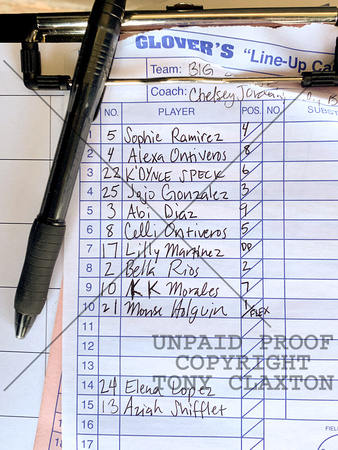 GLOVER'S "Line-Up Ca
Team: BIG
Coach: Chelsey Jordan
NO. PLAYER POS. NO. SUBST
1 5 Sophie Ramirez 4
2 4 Alexa Ontiveros 8
3 22 K'OYNCE SPECK 6
4 25 Jojo Gonzalez 3
5 3 Abi Diaz 9
6 8 Celli Ontiveros 5
7 17 Lilly Martinez DP
8 2 Bella Rios 2
9 10 KK Morales 7
10 21 Monse Holguin 1/FLEX
11
12
13
14 24 Elena Lopez
15 13 Aziah Shifflet
16
17
18
FIEL
UNPAID PROOF
COPYRIGHT
TONY CLAXTON